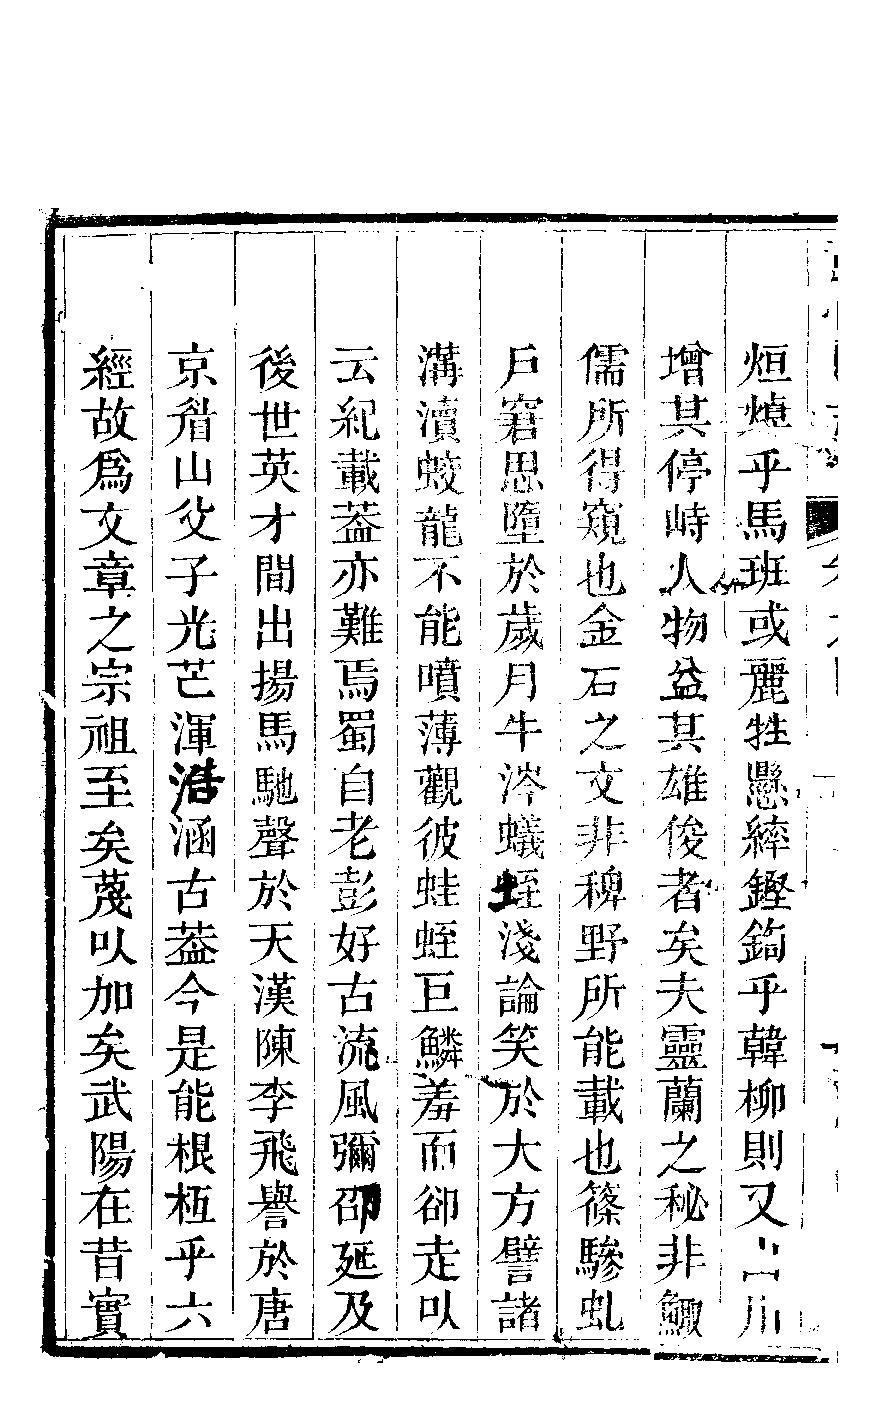 烜燌乎馬班或麗牲懸綷鏗鍧乎韓柳則又山川
增其停峙人物益其雄俊者矣夫靈蘭之秘非鯫
儒所得窺也金石之文非稗野所能載也篠驂虬
戶窘思墮於歲月牛涔蟻蛭淺論笑於大方譬諸
溝瀆蛟龍不能噴薄觀彼蛙蛭巨鱗羞而卻走以
云紀載蓋亦難焉蜀自老彭好古流風彌邵延及
後世英才間出揚馬馳聲於天漢陳李飛譽於唐
京眉山父子光芒渾浩涵古蓋今是能根柢乎六
經故爲文章之宗祖至矣蔑以加矣武陽在昔實